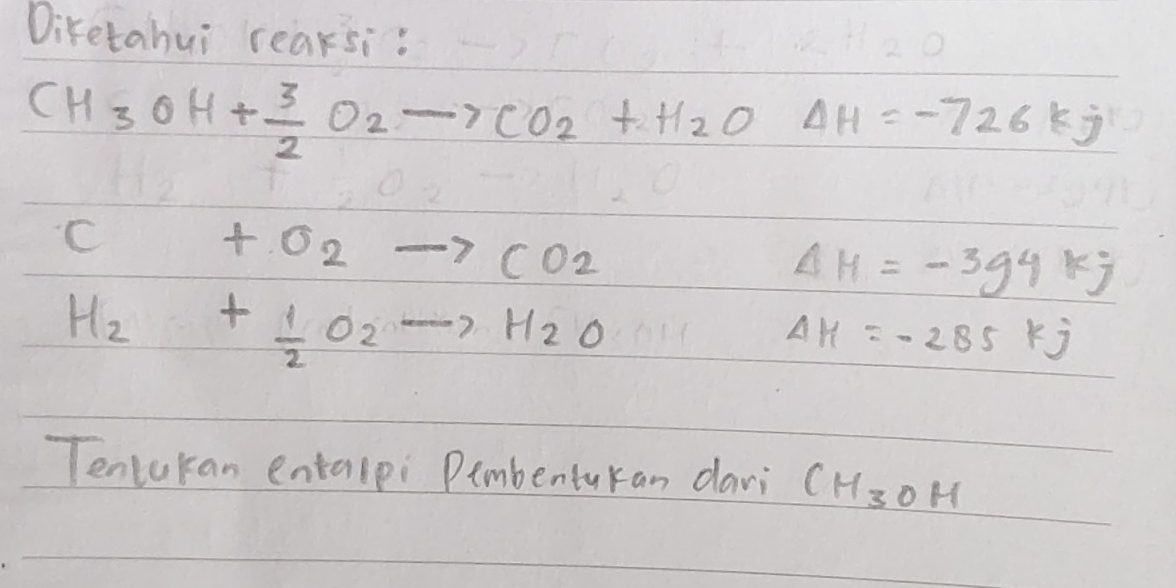 Diketahui reaksi :
CH3OH + 3/2 O2 → CO2 + H2O ΔH = -726 kj
C + O2 → CO2 ΔH = -394 kj
H2 + 1/2 O2 → H2O ΔH = -285 kj
Tentukan entalpi Pembentukan dari CH3OH